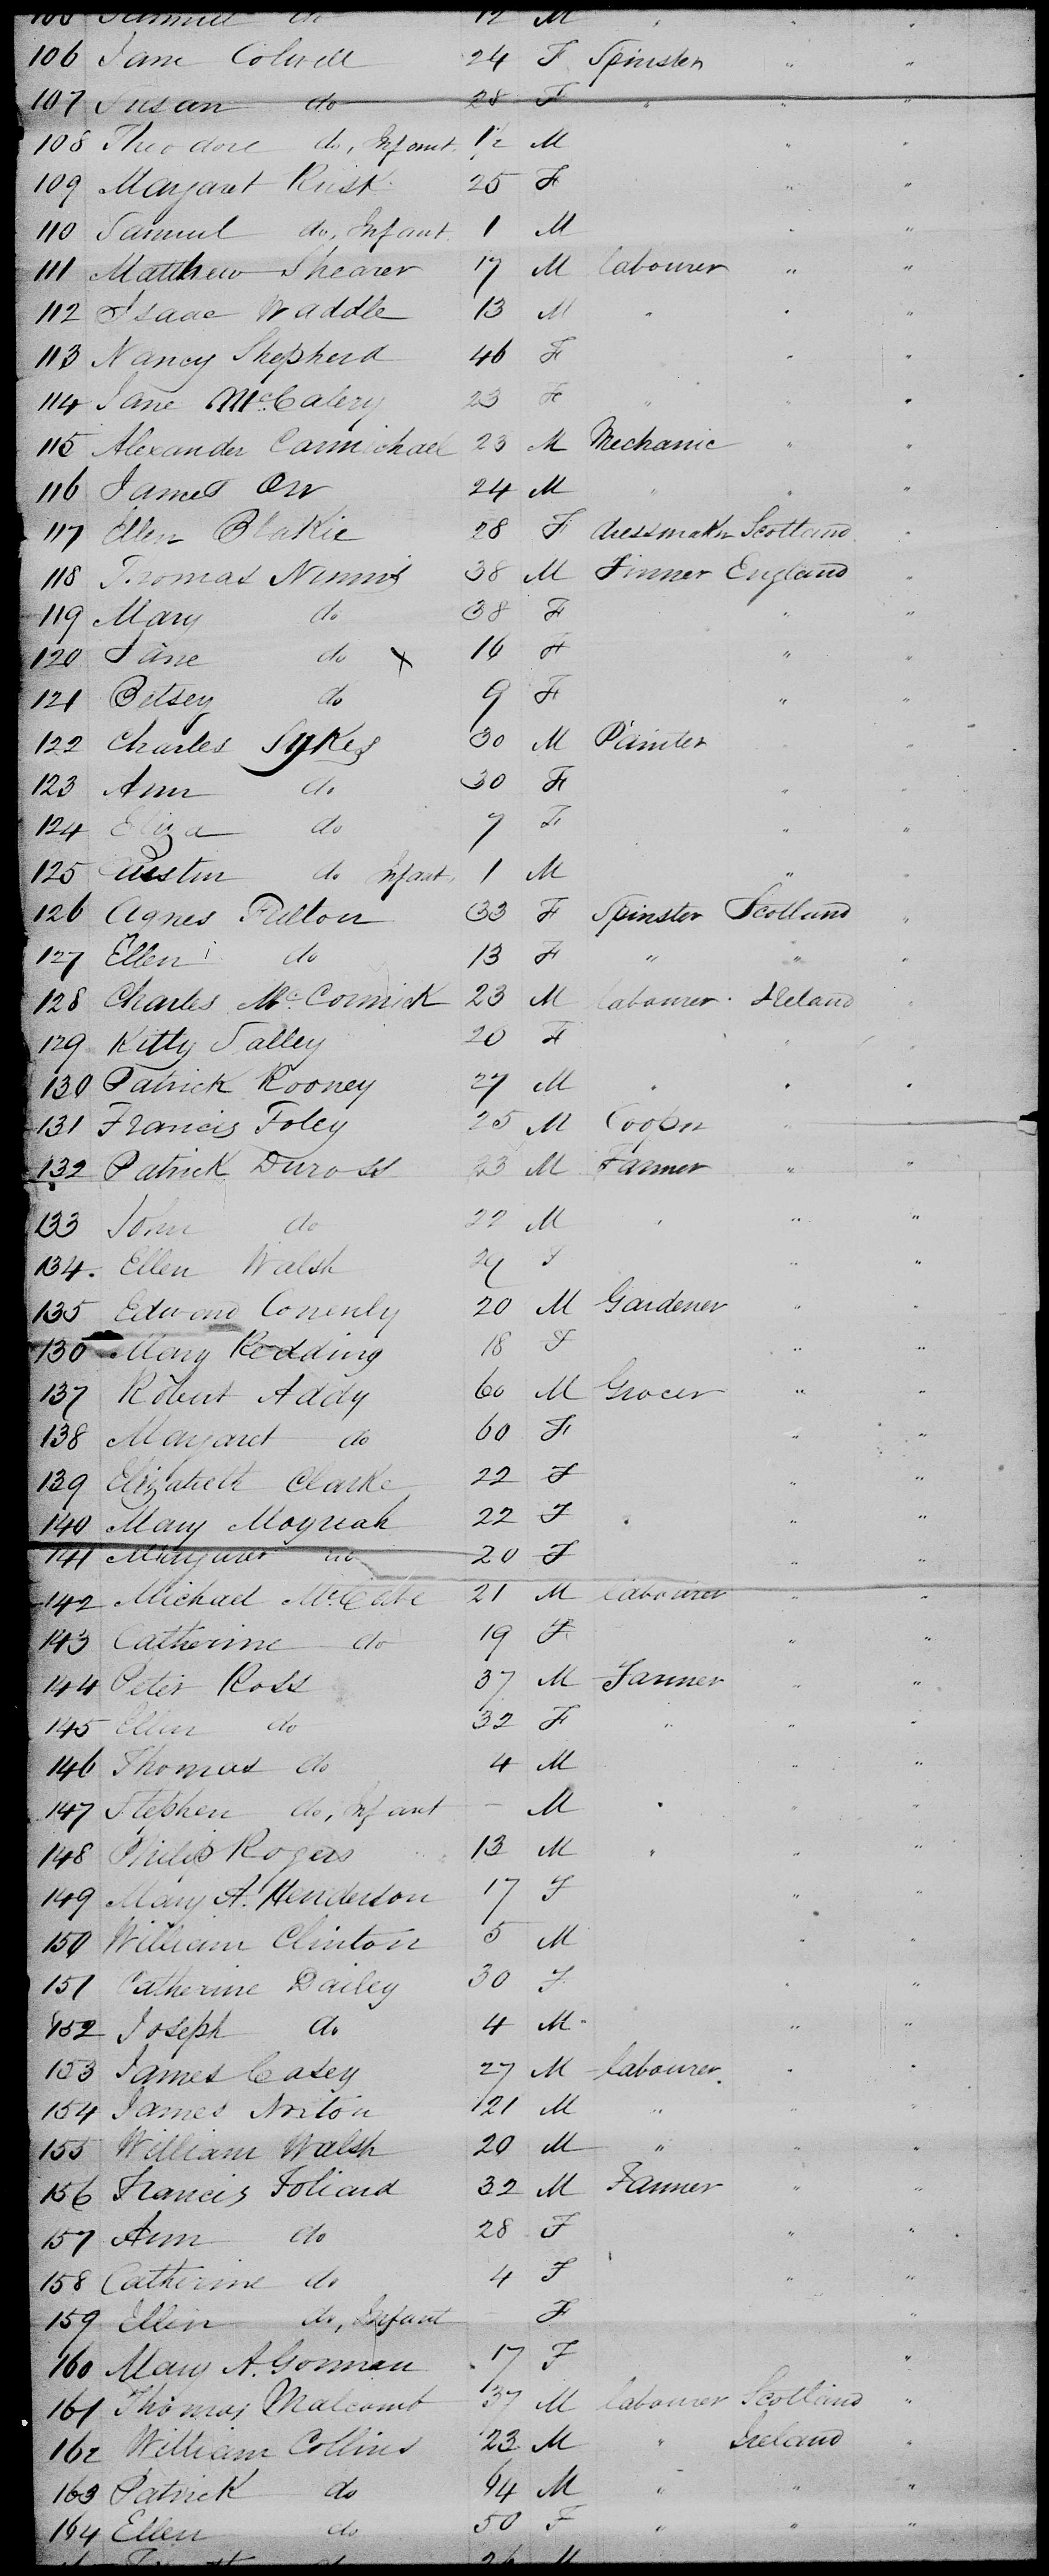 Samuel do 12 M " "
106 Jane Colwell 24 F Spinster " "
107 Susan do 28 F " " "
108 Theodore do, Infant 1/2 M " "
109 Margaret Rusk 25 F " "
110 Samuel do, Infant 1 M " "
111 Matthew Shearer 17 M labourer " "
112 Isaac Waddle 13 M " " "
113 Nancy Shepherd 46 F " "
114 Jane McCalery 23 F " " "
115 Alexander Carmichael 23 M Mechanic " "
116 James Orr 24 M " " "
117 Ellen Blakie 28 F dressmakr Scotland "
118 Thomas Ninnis 38 M Tinner England "
119 Mary do 38 F " "
120 Jane do x 16 F " "
121 Betsey do 9 F " "
122 Charles Sykes 30 M Painter " "
123 Ann do 30 F " "
124 Eliza do 7 F " "
125 Austin do Infant 1 M " "
126 Agnes Fulton 33 F Spinster Scotland "
127 Ellen do 13 F " " "
128 Charles McCormick 23 M labourer Ireland "
129 Kitty Salley 20 F " "
130 Patrick Rooney 27 M " " "
131 Francis Foley 25 M Cooper " "
132 Patrick Duross 23 M Farmer " "
133 John do 22 M " " "
134. Ellen Walsh F " "
135 Edward Conenly 20 M Gardener " "
136 Mary Redding 18 F " "
137 Robert Addy 60 M Grocer " "
138 Margaret do 60 F " "
139 Elizabeth Clarke 22 F " "
140 Mary Mogreah 22 F " " "
141 Margaret do 20 F " "
142 Michael McCabe 21 M labourer " "
143 Catherine do 19 F " "
144 Peter Ross 37 M Farmer " "
145 Ellen do 32 F " " "
146 Thomas do 4 M " "
147 Stephen do, Infant - M " " "
148 Philip Rogers 13 M " " "
149 Mary A. Henderson 17 F " "
150 William Clinton 5 M " "
151 Catherine Dailey 30 F " "
152 Joseph do 4 M " "
153 James Casey 27 M labourer " "
154 James Norton 21 M " " "
155 William Walsh 20 M " " "
156 Francis Foliard 32 M Farmer " "
157 Ann do 28 F " "
158 Catherine do 4 F " "
159 Ellen do, Infant F "
160 Mary A. Gorman 17 F "
161 Thomas Malcomb 37 M labourer Scotland "
162 William Collins 23 M " Ireland "
163 Patrick do 64 M " " "
164 Ellen do 50 F " " "
do 26 M